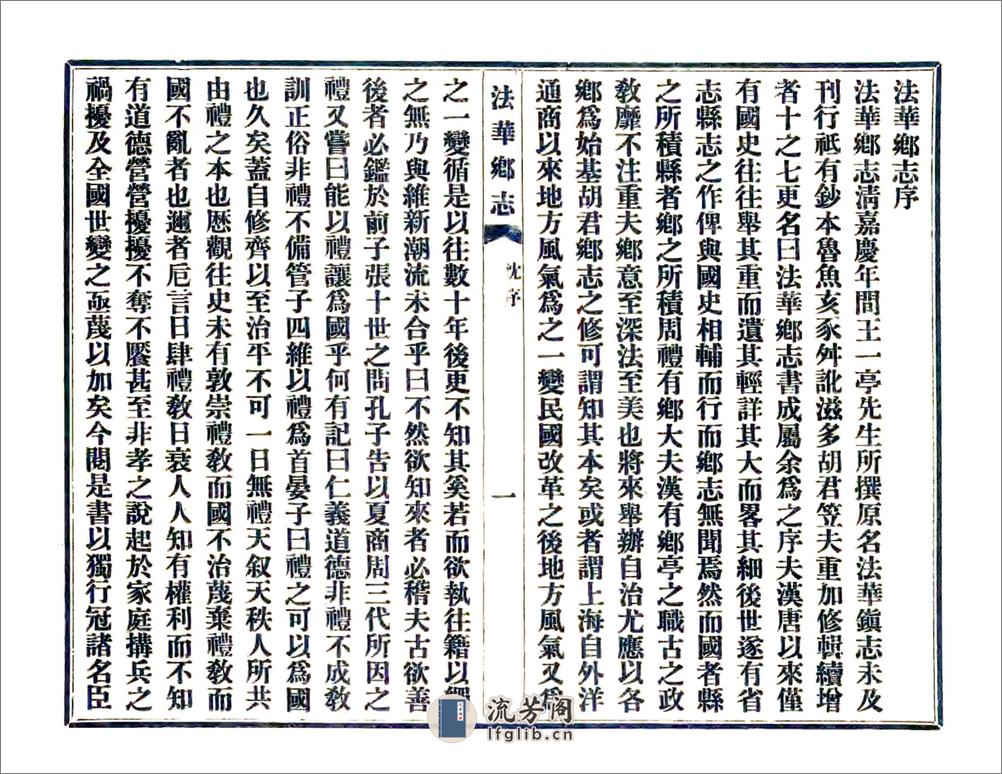 法華鄉志序
法華鄉志淸嘉慶年間王一亭先生所撰原名法華鎭志未及
刊行祇有鈔本魯魚亥豕舛訛滋多胡君笠夫重加修輯續增
者十之七更名曰法華鄉志書成屬余爲之序夫漢唐以來僅
有國史往往舉其重而遺其輕詳其大而畧其細後世遂有省
志縣志之作俾與國史相輔而行而鄉志無聞焉然而國者縣
之所積縣者鄉之所積周禮有鄉大夫漢有鄉亭之職古之政
敎靡不注重夫鄉意至深法至美也將來舉辦自治尤應以各
鄉爲始基胡君鄉志之修可謂知其本矣或者謂上海自外洋
通商以來地方風氣爲之一變民國改革之後地方風氣又爲
法華鄉志
沈序
一
之一變循是以往數十年後更不知其奚若而欲執往籍以繩
之無乃與維新潮流未合乎曰不然欲知來者必稽夫古欲善
後者必鑑於前子張十世之問孔子告以夏商周三代所因之
禮又嘗曰能以禮讓爲國乎何有記曰仁義道德非禮不成敎
訓正俗非禮不備管子四維以禮爲首晏子曰禮之可以爲國
也久矣蓋自修齊以至治平不可一日無禮天叙天秩人所共
由禮之本也歷觀往史未有敦崇禮敎而國不治蔑棄禮敎而
國不亂者也邇者卮言日肆禮敎日衰人人知有權利而不知
有道德營營擾擾不奪不饜甚至非孝之說起於家庭搆兵之
禍擾及全國世變之亟蔑以加矣今閱是書以獨行冠諸名臣
流芳阁
lfglib.cn